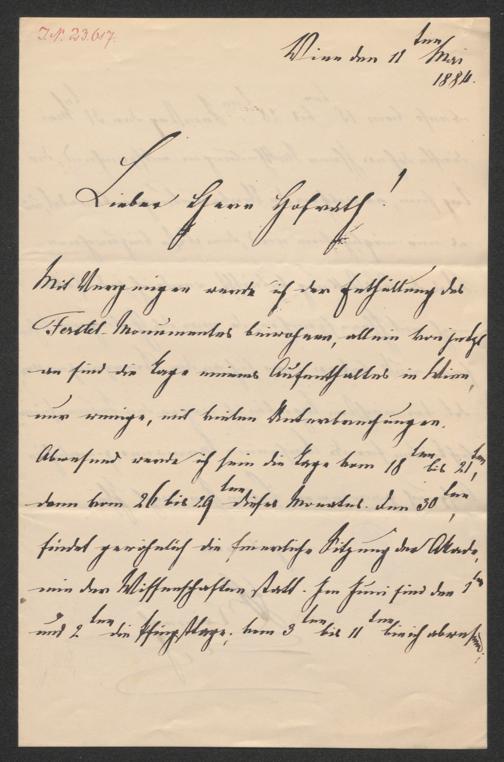 I.N. 23.617.
Wien den 11ten Mai
1884.
Lieber Herr Hofrath!
Mit Vergnügen werde ich der Enthüllung des
Ferstel-Monumentes beiwohnen, allein von jetzt
an sind die Tage meines Aufenthaltes in Wien,
nur wenige, mit vielen Unterbrechungen.
Abwesend werde ich sein die Tage vom 18ten bis 21ten,
dann vom 26 bis 29ten dieses Monates. Den 30ten,
findet gewöhnlich die feierliche Sitzung der Akade,
mie der Wissenschaften statt. Im Juni sind den 1ten
und 2ten die Pfingsttage; vom 3ten bis 11ten bin ich abwesend;